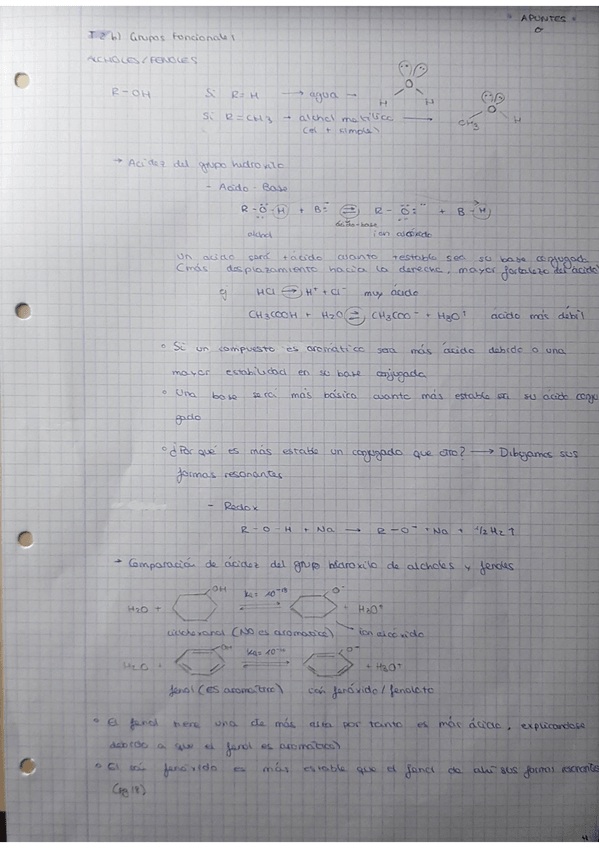 APUNTES
T2 b) Grupos Funcionales
ALCHOLES/FENOLES
R-OH Si R=H → agua →
O
H H
Si R=CH3 → alchol metílico →
(el + simple)
O
CH3 H
→ Acidez del grupo hidroxilo
- Acido-Base
R-O-H + B:⁻ ⇌ R-O:⁻ + B-H
ácido-base
alchol ion alcóxido
Un acido será + ácido cuanto + estable sea su base conjugada
(más desplazamiento hacia la derecha, mayor fortaleza del ácido)
HCl → H⁺ + Cl⁻ muy ácido
CH3COOH + H2O ⇌ CH3COO⁻ + H3O⁺ ácido más débil
◦ Si un compuesto es aromático será más ácido debido a una
mayor estabilidad en su base conjugada
◦ Una base será más básica cuanto más estable su ácido conju
gado
◦ ¿Por qué es más estable un conjugado que otro? → Dibujamos sus
formas resonantes
- Redox
R-O-H + Na → R-O⁻ ⁺Na + 1/2 H2 ↑
→ Comparación de ácidez del grupo hidroxilo de alcholes y fenoles
OH O⁻
H2O + + H3O⁺
ciclohexanol (NO es aromático) ion alcóxido
OH O⁻
H2O + + H3O⁺
fenol (ES aromático) ion fenóxido/fenolato
◦ El fenol tiene una más alta por tanto es más ácido, explicandose
debido a que el fenol es aromático)
◦ El ión fenóxido es más estable que el fenol de ahí sus formas resonantes
(pg 18)